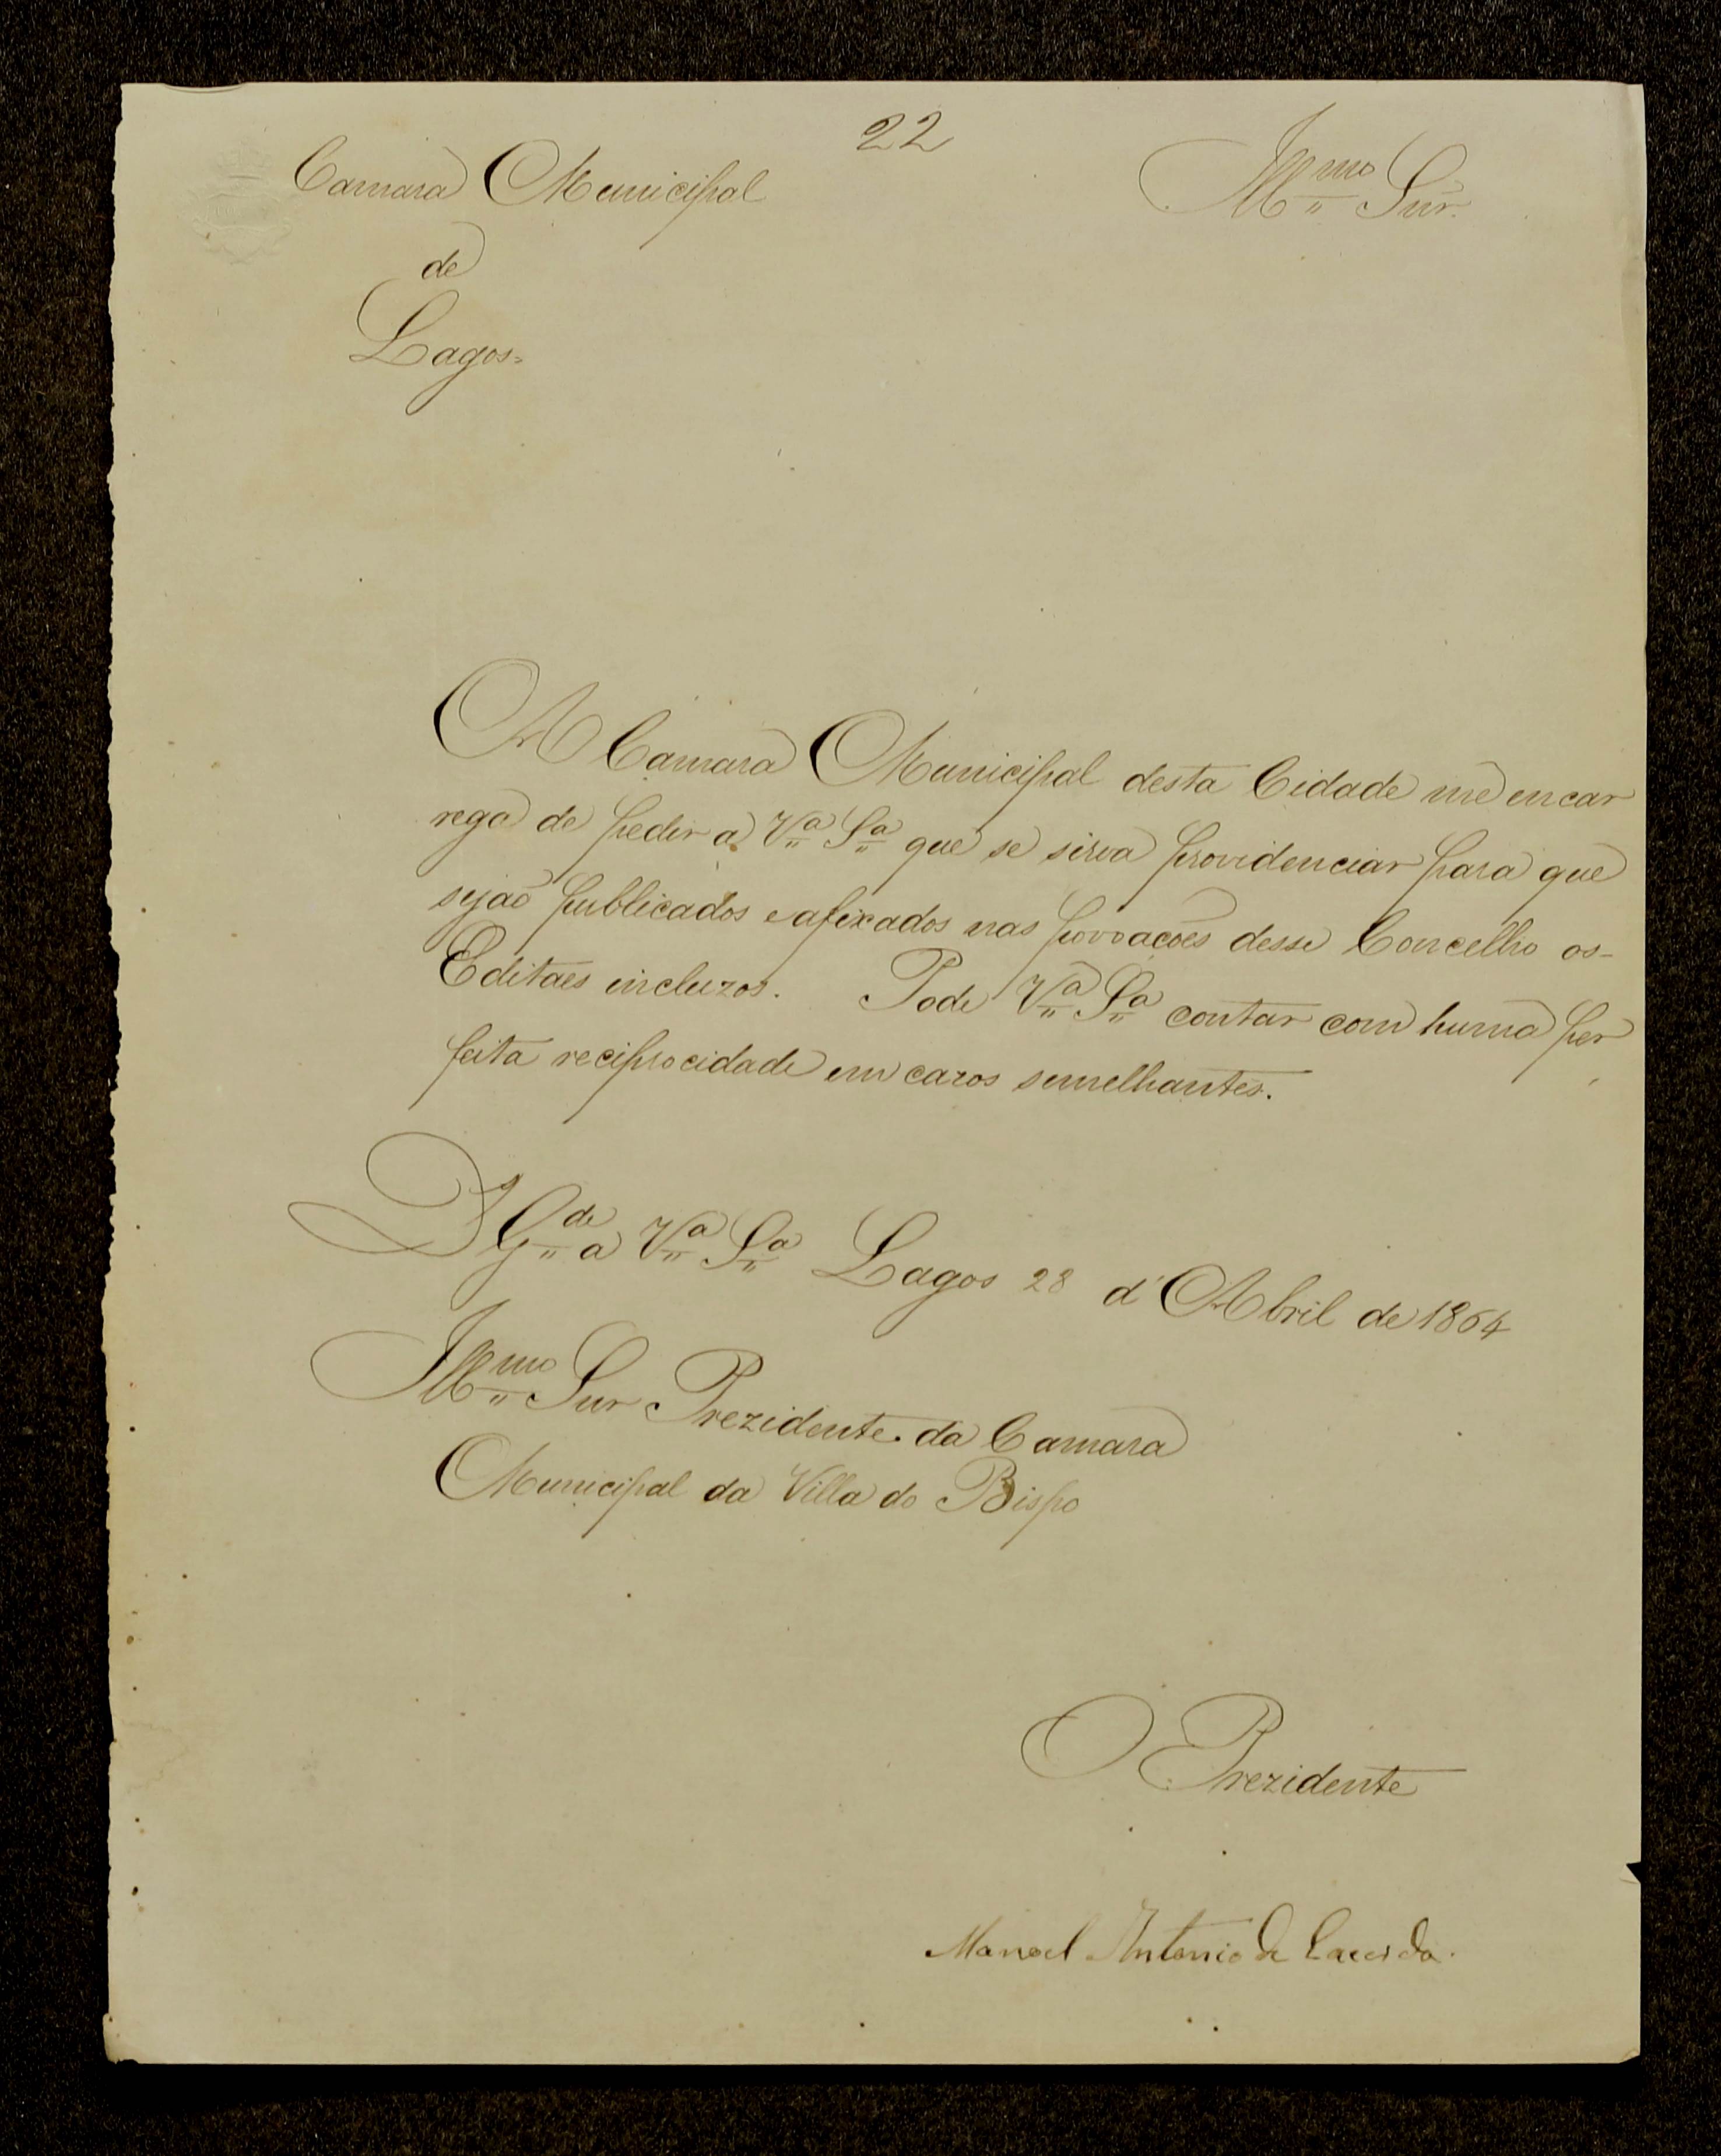 22
Camara Municipal
de
Lagos=
Illmo Snr.
A Camara Municipal desta Cidade me encar
rega de pedir a Va Sa que se sirva providenciar para que
sejaõ publicados e afixados nas povoações desse Concelho os-
Editaes incluzos. Pode Va Sa contar com huma per
feita reciprocidade em cazos semelhantes.
D Gde a Va Sa Lagos 28 d'Abril de 1864
Illmo Snr Prezidente da Camara
Municipal da Villa do Bispo
O Prezidente
Manoel Antonio de Lacerda.